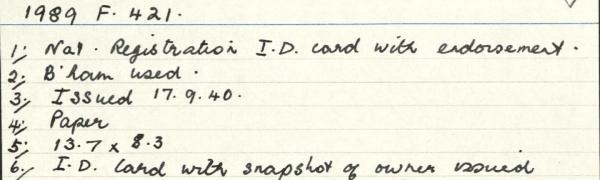 1989 F. 421.
1. Nat. Registration I.D. card with endorsement.
2. B'ham used.
3. Issued 17.9.40.
4. Paper
5. 13.7 x 8.3
6. I.D. Card with snapshot of owner issued